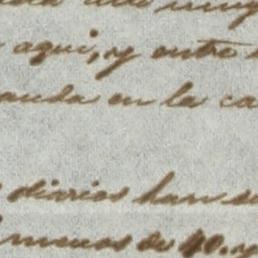 muy
aqui, y entre
anda en la ca
diarios han su
menos de 40. y